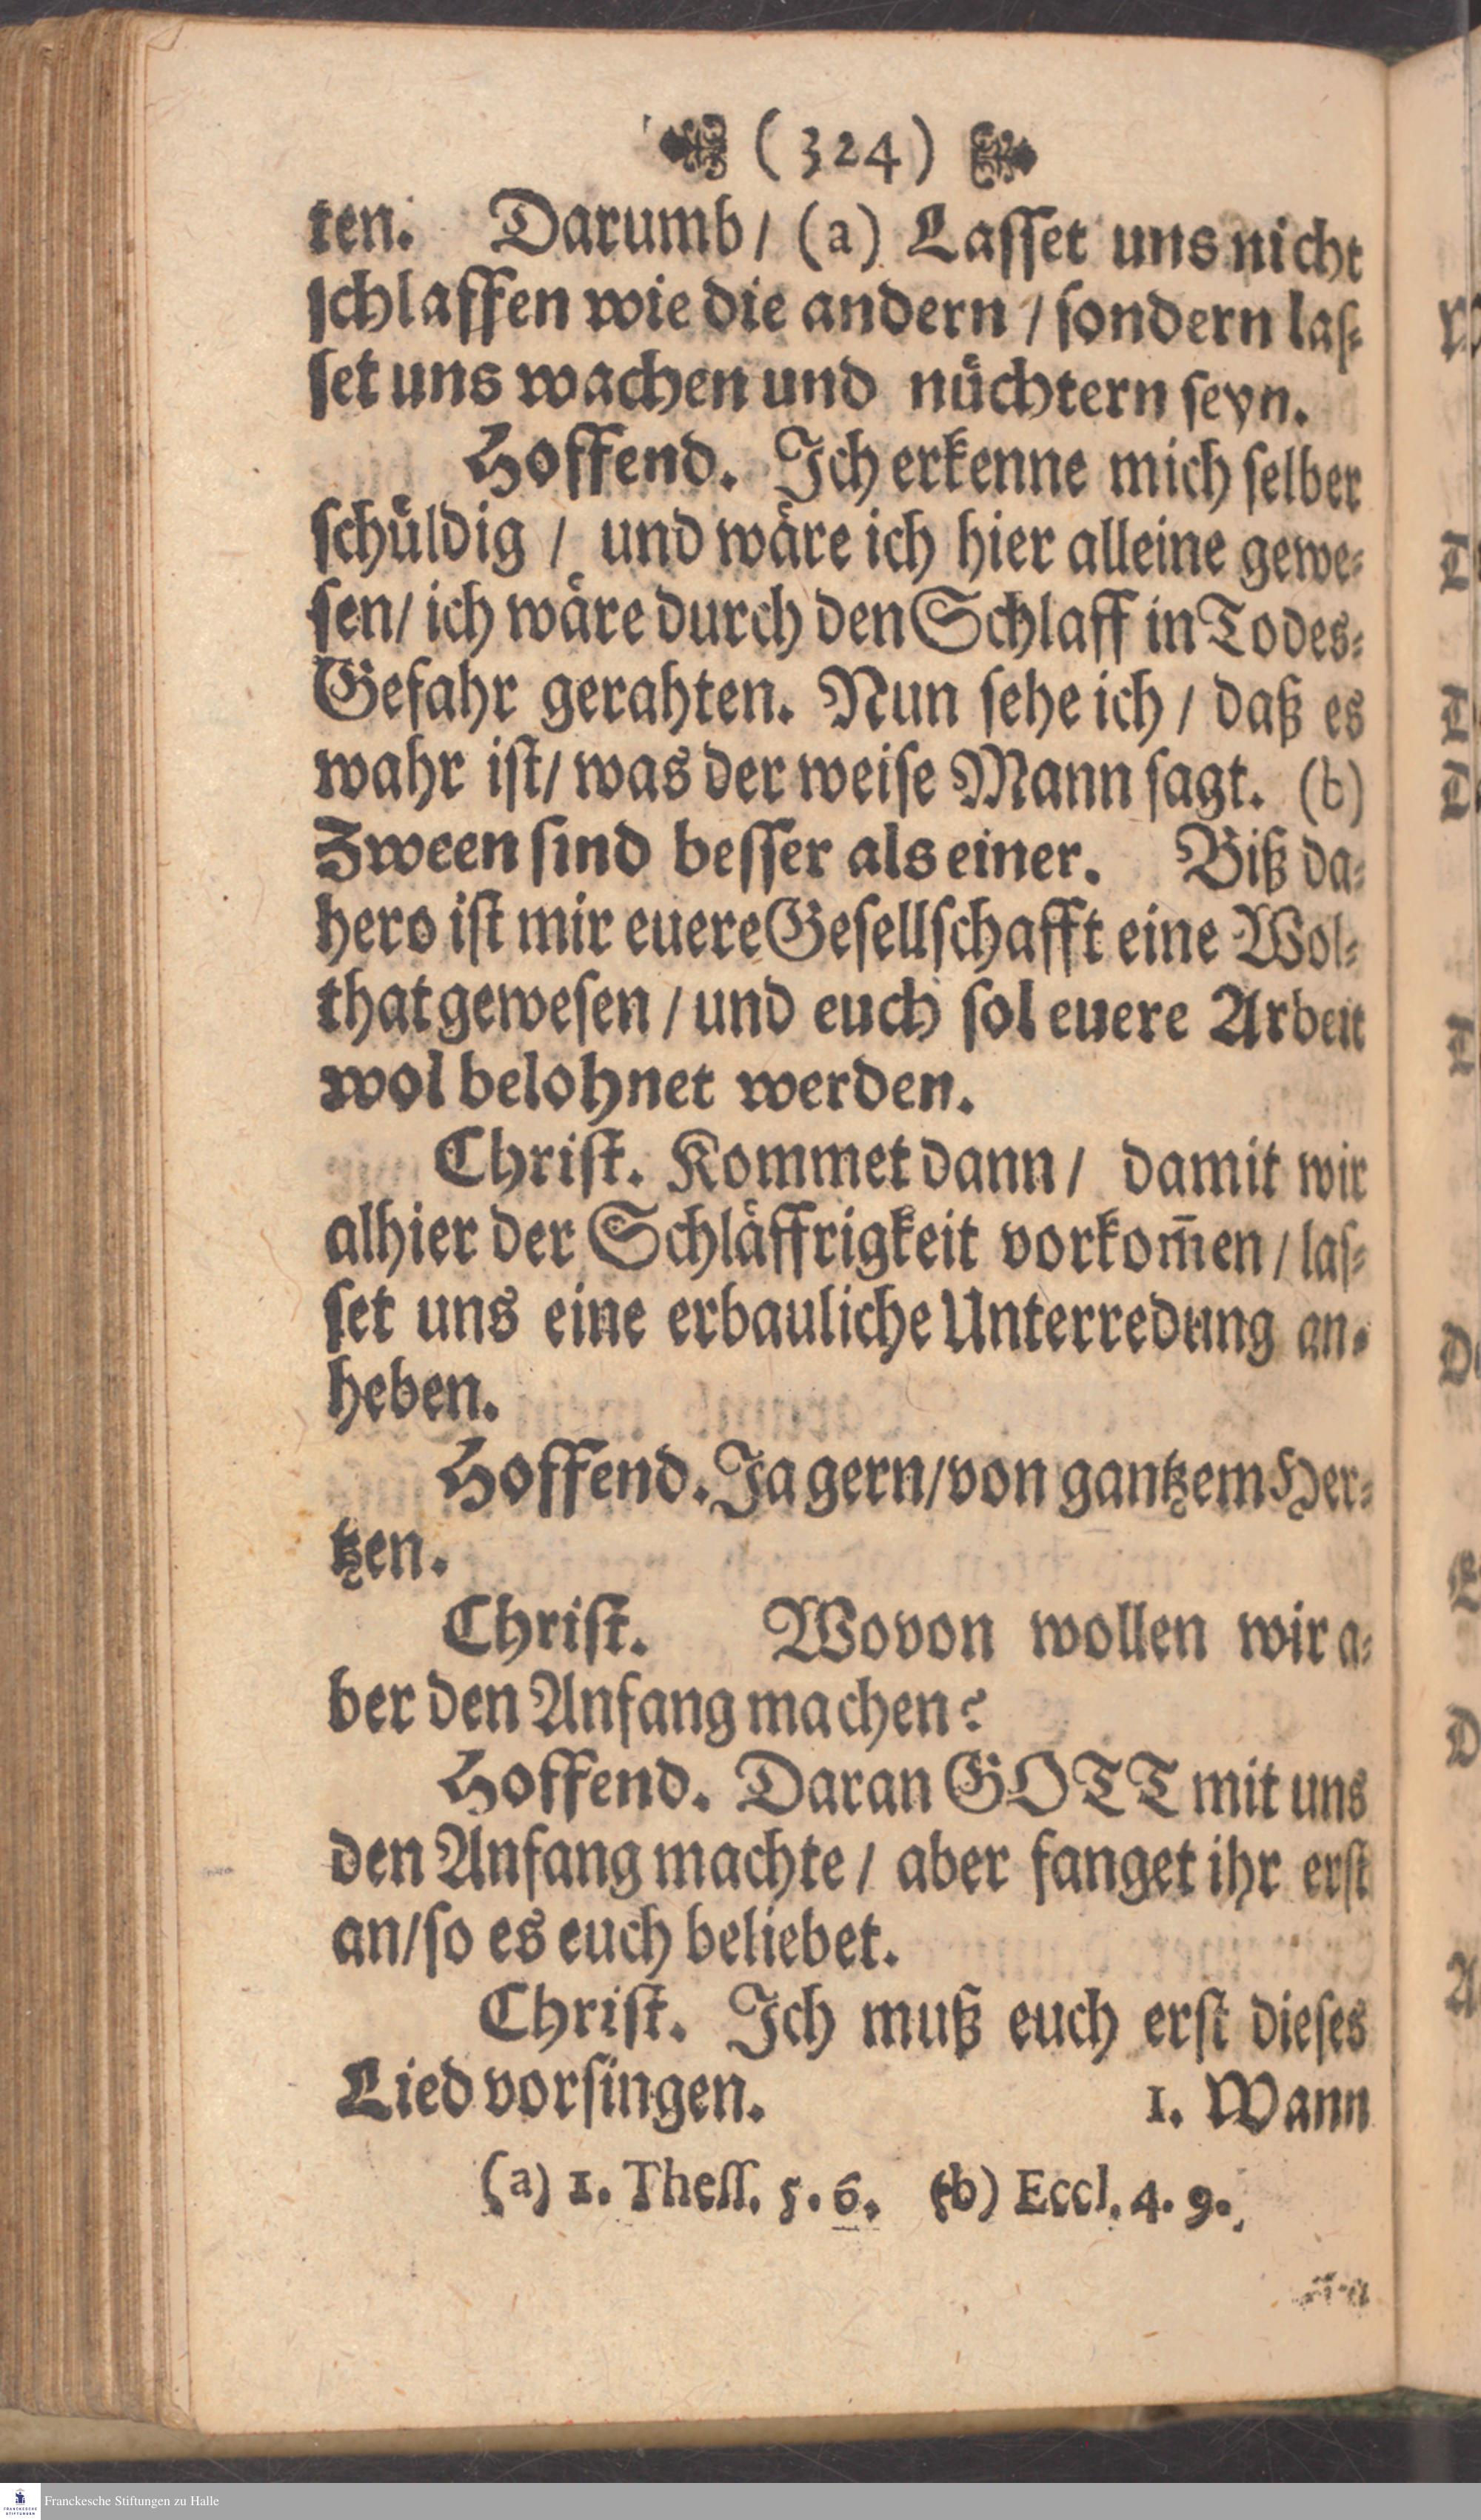 (324)
ten. Darumb/ (a) Lasset uns nicht
schlaffen wie die andern / sondern las⸗
set uns wachen und nüchtern seyn.
Hoffend. Ich erkenne mich selber
schüldig / und wäre ich hier alleine gewe⸗
sen/ ich wäre durch den Schlaff in Todes⸗
Gefahr gerahten. Nun sehe ich / daß es
wahr ist/ was der weise Mann sagt. (b)
Zween sind besser als einer. Biß da⸗
hero ist mir euere Gesellschafft eine Wol⸗
that gewesen / und euch sol euere Arbeit
wol belohnet werden.
Christ. Kommet dann / damit wir
alhier der Schläffrigkeit vorkom̄en / las⸗
set uns eine erbauliche Unterredung an⸗
heben.
Hoffend. Ja gern/von gantzem Her⸗
tzen.
Christ. Wovon wollen wir a⸗
ber den Anfang machen?
Hoffend. Daran GOTT mit uns
den Anfang machte / aber fanget ihr erst
an/so es euch beliebet.
Christ. Ich muß euch erst dieses
Lied vorsingen. 1. Wann
(a) 1. Thess. 5. 6. (b) Eccl. 4. 9.
Franckesche Stiftungen zu Halle